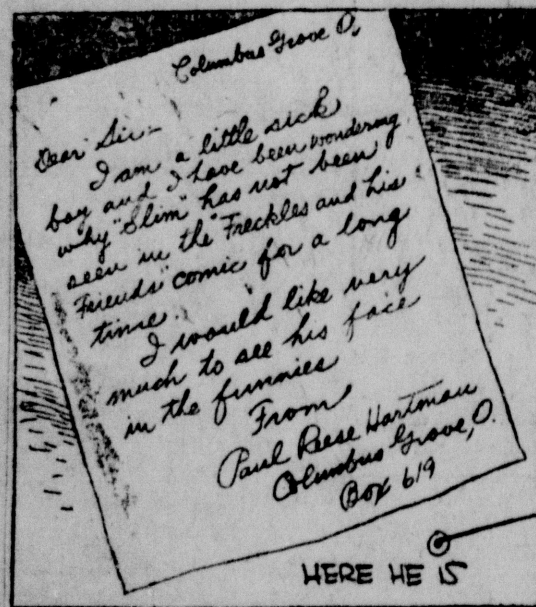 Columbus Grove O,
Dear Sir:-
I am a little sick
boy and I have been wondering
why "Slim" has not been
seen in the "Freckles and his
Friends" comic for a long
time.
I would like very
much to see his face
in the funnies
From
Paul Reese Hartman
Columbus Grove, O.
Box 619
HERE HE IS